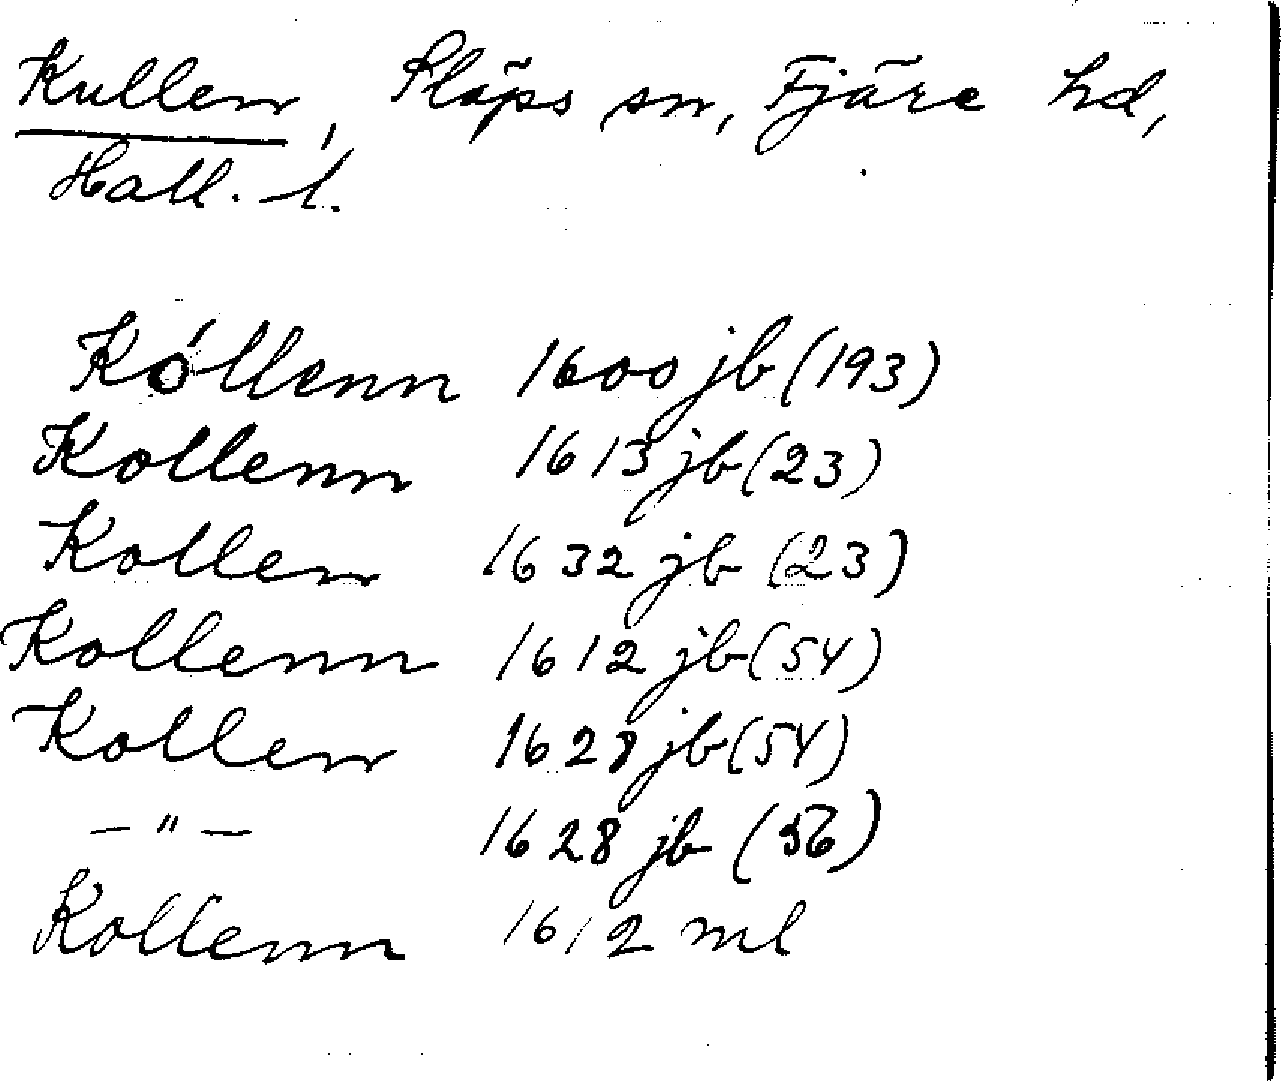 Kullen, Släps sn, Fjäre hd,
Hall. l.
Kóllenn 1600 jb (193)
Kollenn 1613 jb (23)
Kollen 1632 jb (23)
Kollenn 1612 jb (54)
Kollen 1628 jb (54)
— " — 1628 jb (56)
Kollenn 1612 ml